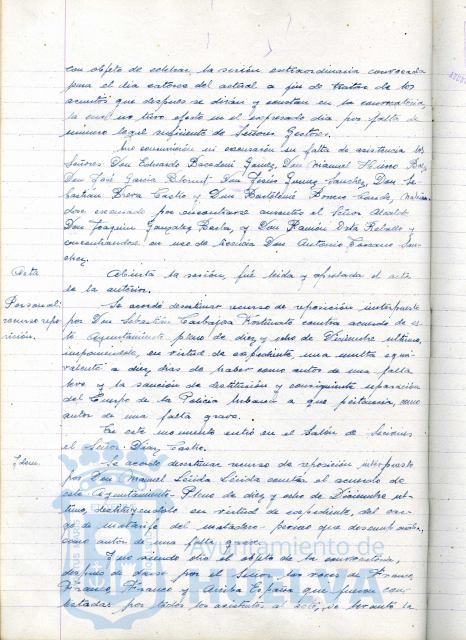 con objeto de celebrar la sesión extraordinaria convocada
para el dia catorce del actual a fin de tratar de los
asuntos que despues se dirán y constan en la convocatoria,
la cual no tuvo efecto en el expresado dia por falta de
número legal suficiente de Señores Gestores.
sin comunicación ni excusación su falta de asistencia los
Señores Don Eduardo Bacedoni Gomez, Don Manuel
Don José Garcia Don Jesús Gomez Sanchez, Don Se-
bastián Brera Castro y Don Bartolomé Romero Conde,
dose excusado por encontrarse ausentes el Señor Alcalde
Don Joaquin Gonzalez y Don Ramón Orta Rebollo y
encontrandose en uso de licencia Don Antonio San-
chez.
Acta
Abierta la sesión, fué leida y aprobada el acta
de la anterior.
Personal:
recurso repo-
sición.
Se acordó desestimar recurso de reposición interpuesto
por Don Sebastián Carbajosa contra acuerdo de es-
te Ayuntamiento pleno de diez y ocho de Diciembre ultimo,
imponiendole, en virtud de expediente, una multa equi-
valente a diez dias de haber como autor de una falta
leve y la sanción de destitución y consiguiente separación
del Cuerpo de la Policia Urbana a que pertenecia, como
autor de una falta grave.
En este momento entró en el Salón de Sesiones
el Señor Diaz Castro.
Idem.
Se acordó desestimar recurso de reposición interpuesto
por Don Manuel contra el acuerdo de
este Ayuntamiento Pleno de diez y ocho de Diciembre ul-
timo, destituyendolo en virtud de expediente, del car-
go de matarife del matadero que desempeñaba,
como autor de una falta grave.
Y no siendo otro el objeto de la convocatoria,
despues de darse por el Señor las voces de Franco,
Franco, Franco y Arriba España que fueron con-
testadas por todos los asistentes al acto, se levantó la
Ayuntamiento de
HUELVA